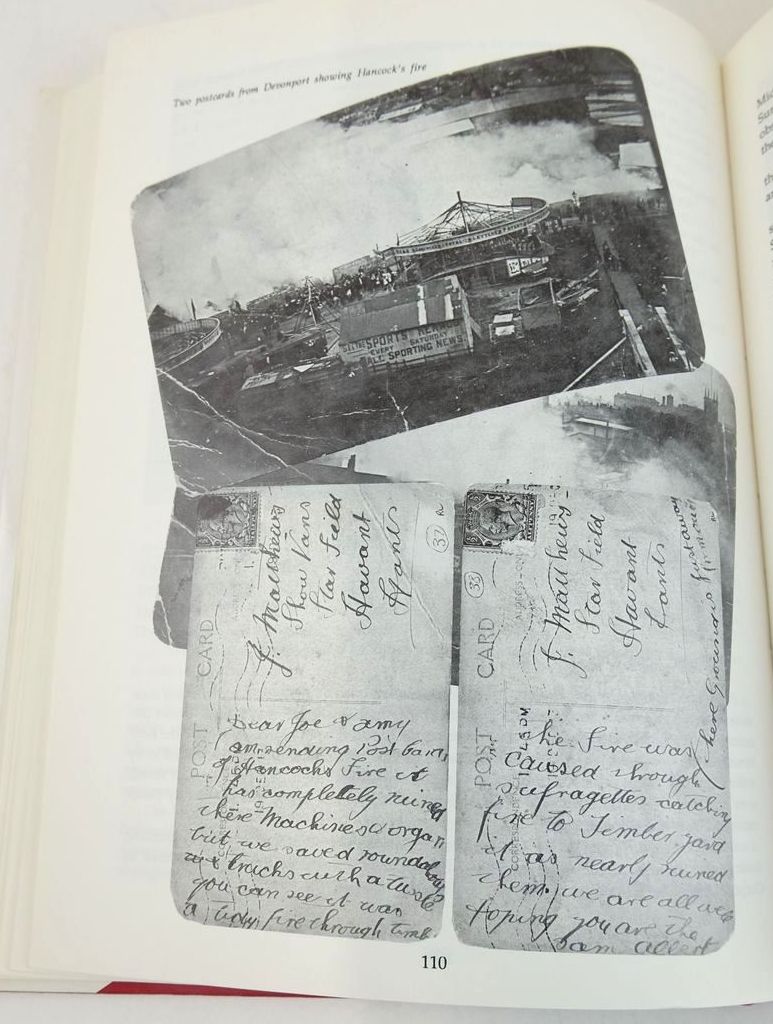 Two postcards from Devonport showing Hancock's fire
SPORTS
EVERY SATURDAY
SPORTING NEWS
POST CARD
J. Matthews
Show Vans
Star Field
Havant
Hants
37
Dear Joe & Amy
I am sending Post Cards
of Hancocks Fire it
has completely ruined
there Machines & organ
but we saved roundabout
trucks with a tussle
you can see it was
a tidy fire through timb
POST CARD
J. Matthews
Star Field
Havant
Hants
33
he fire was
caused through
sufragettes catching
fire to Timber yard
it as nearly ruined
them we are all well
hoping you are the
sam Albert
there Grounds
just away
110